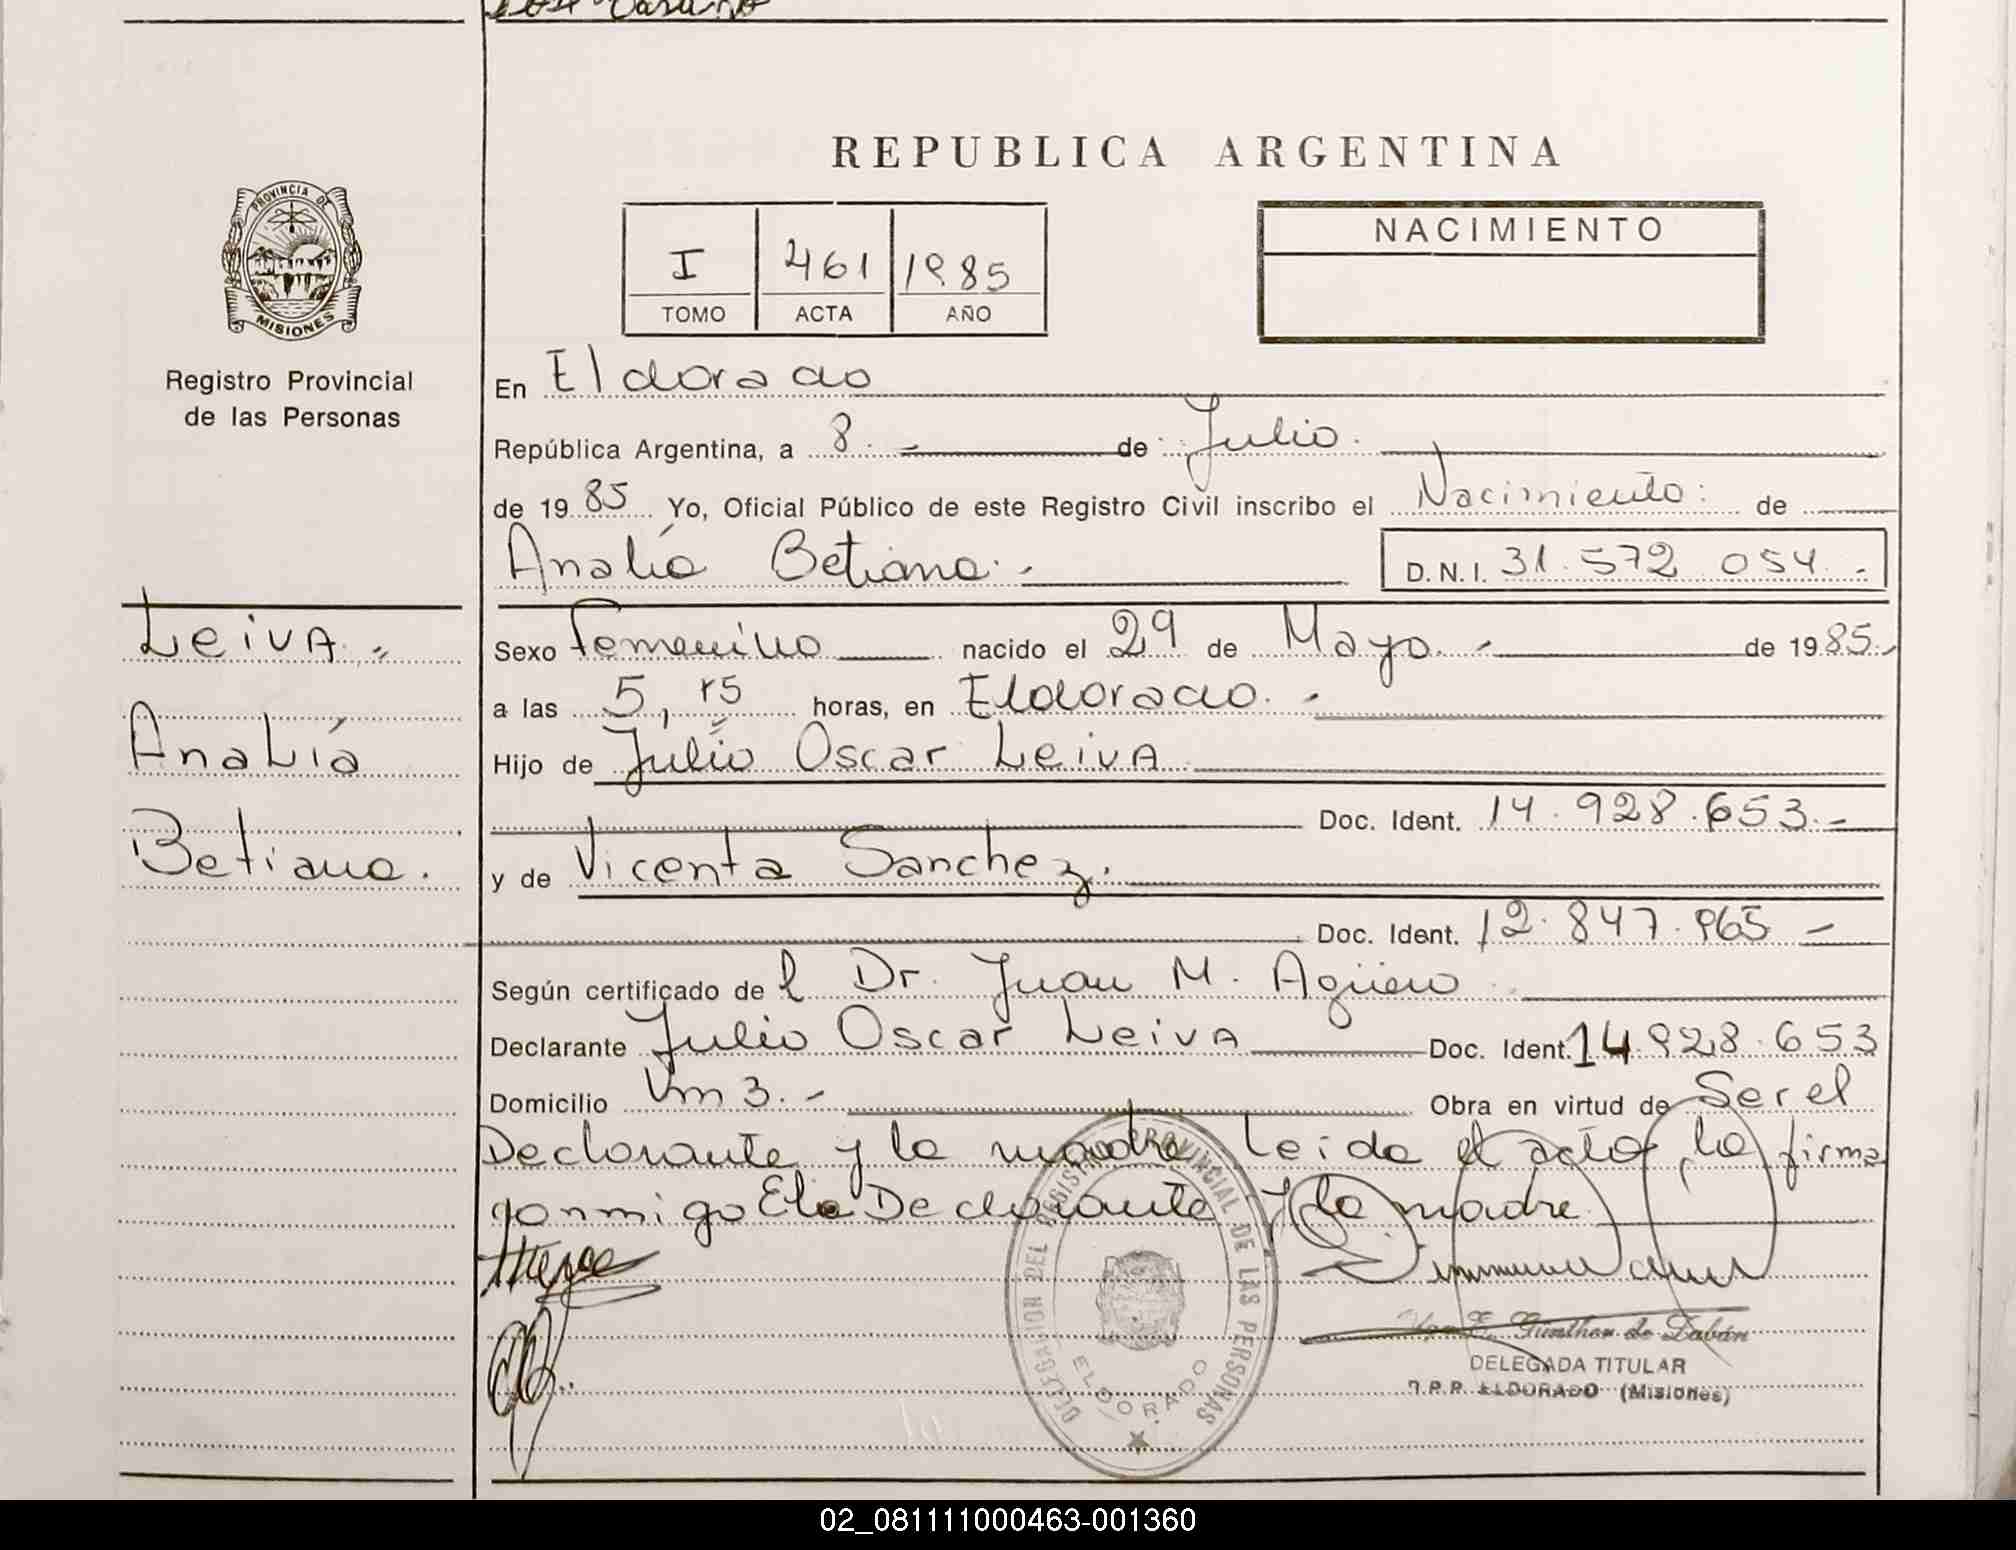 REPUBLICA ARGENTINA
PROVINCIA DE
MISIONES
Registro Provincial
de las Personas
I 461 1985
TOMO ACTA AÑO
NACIMIENTO
En Eldorado
República Argentina, a 8.- de Julio.
de 1985 Yo, Oficial Público de este Registro Civil inscribo el Nacimiento: de
Analía Betiana.-
D.N.I. 31.572 054.-
Leiva.-
Analía
Betiana.
Sexo Femenino nacido el 29 de Mayo.- de 1985.-
a las 5,15 horas, en Eldorado.-
Hijo de Julio Oscar Leiva
Doc. Ident. 14.928.653.-
y de Vicenta Sanchez.
Doc. Ident. 12.847.965-
Según certificado del Dr. Juan M. Agüero
Declarante Julio Oscar Leiva Doc. Ident. 14 928.653
Domicilio km 3.- Obra en virtud de Ser el
Declarante y la madre Leida el acta, la firma
conmigo El Declarante y la madre
DELEGACION DEL REGISTRO PROVINCIAL DE LAS PERSONAS
ELDORADO
E. Günther de Zabán
DELEGADA TITULAR
R.P.P. ELDORADO (Misiones)
02_081111000463-001360